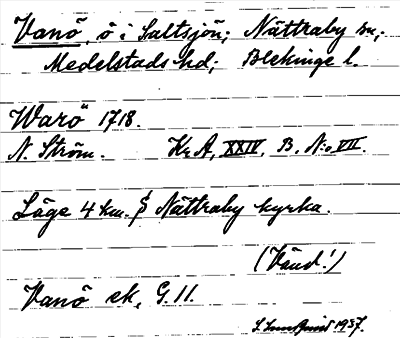 Vanö, ö i Saltsjön; Nättraby sn;
Medelstads hd; Blekinge l.
Warö 1718.
N. Ström. Kr. A, XXIV, B, N:o VII.
Läge 4 km. S Nättraby kyrka.
(Vänd!)
Vanö ek. G. 11.
S. Lundquist 1937.